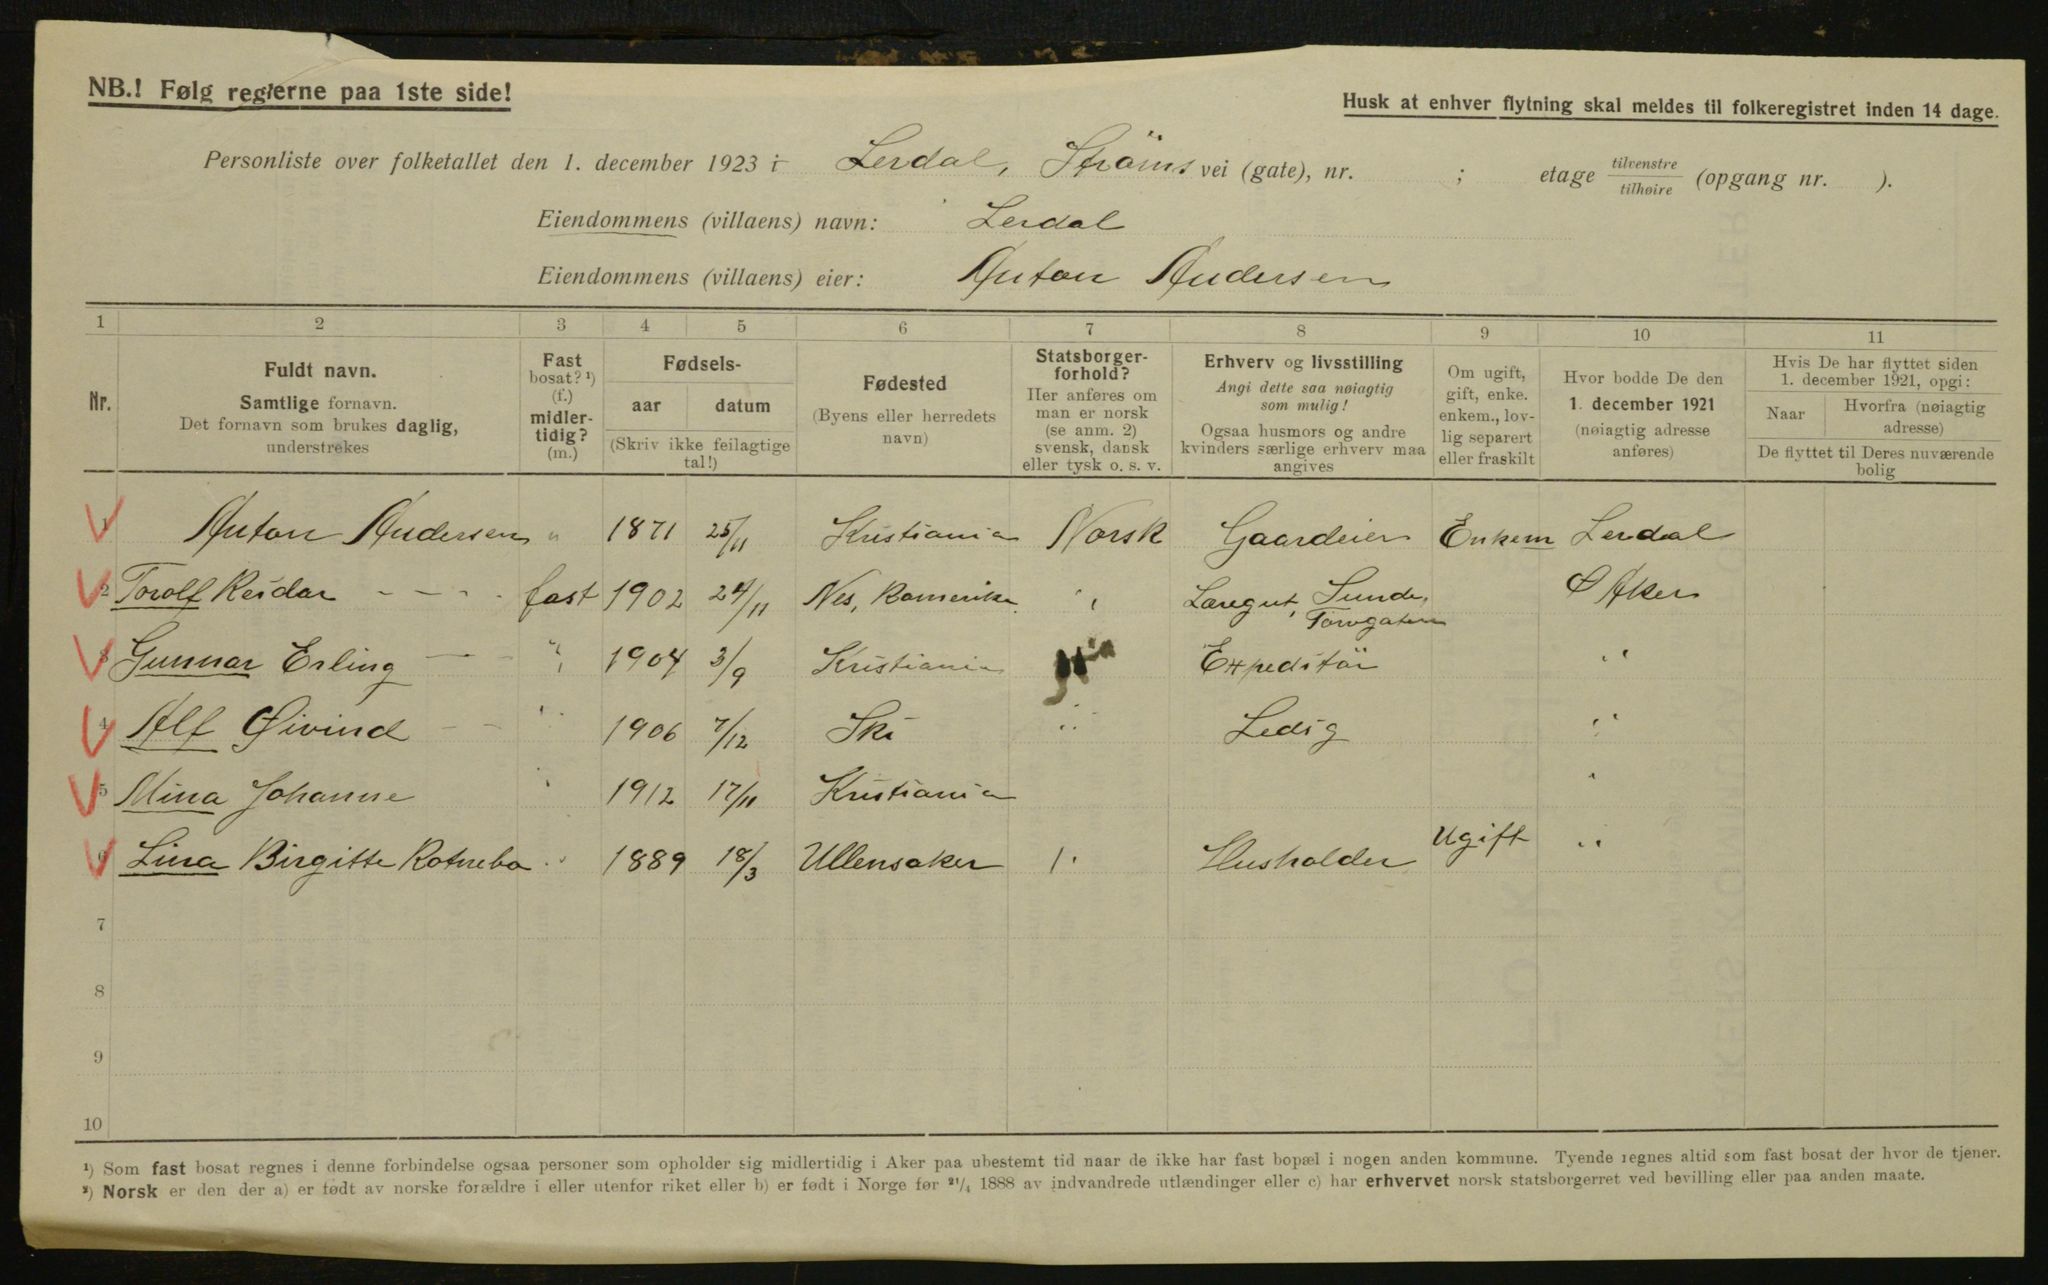 NB.! Følg reglerne paa 1ste side!
Husk at enhver flytning skal meldes til folkeregistret inden 14 dage.
Personliste over folketallet den 1. december 1923 i Lerdal, Ströms vei (gate), nr. ; etage tilvenstre/tilhøire (opgang nr. ).
Eiendommens (villaens) navn: Lerdal
Eiendommens (villaens) eier: Anton Andersen
1 2 3 4 5 6 7 8 9 10 11
Nr.
Fuldt navn.
Samtlige fornavn.
Det fornavn som brukes daglig,
understrekes
Fast
bosat? ¹)
(f.)
midler-
tidig?
(m.)
Fødsels-
aar datum
(Skriv ikke feilagtige
tal!)
Fødested
(Byens eller herredets
navn)
Statsborger-
forhold?
Her anføres om
man er norsk
(se anm. 2)
svensk, dansk
eller tysk o. s. v.
Erhverv og livsstilling
Angi dette saa nøiagtig
som mulig!
Ogsaa husmors og andre
kvinders særlige erhverv maa
angives
Om ugift,
gift, enke.
enkem., lov-
lig separert
eller fraskilt
Hvor bodde De den
1. december 1921
(nøiagtig adresse
anføres)
Hvis De har flyttet siden
1. december 1921, opgi:
Naar
Hvorfra (nøiagtig
adresse)
De flyttet til Deres nuværende
bolig
1 Anton Andersen " 1871 25/11 Kristiania Norsk Gaardeier Enkem Lerdal
2 Torolf Reidar - - - - fast 1902 24/11 Nes, Romerike " Læregut, Sunde, Ø Aker
Torvgaten
3 Gunnar Erling - - - " 1904 3/9 Kristiania Expeditör "
4 Alf Øivind - - " 1906 7/12 Ski " Ledig "
5 Mina Johanne " 1912 17/11 Kristiania "
6 Lina Birgitte Rotnebo " 1889 18/3 Ullensaker " Husholder Ugift "
7
8
9
10
¹) Som fast bosat regnes i denne forbindelse ogsaa personer som opholder sig midlertidig i Aker paa ubestemt tid naar de ikke har fast bopæl i nogen anden kommune. Tyende regnes altid som fast bosat der hvor de tjener.
²) Norsk er den der a) er født av norske forældre i eller utenfor riket eller b) er født i Norge før ²¹/₄ 1888 av indvandrede utlændinger eller c) har erhvervet norsk statsborgerret ved bevilling eller paa anden maate.